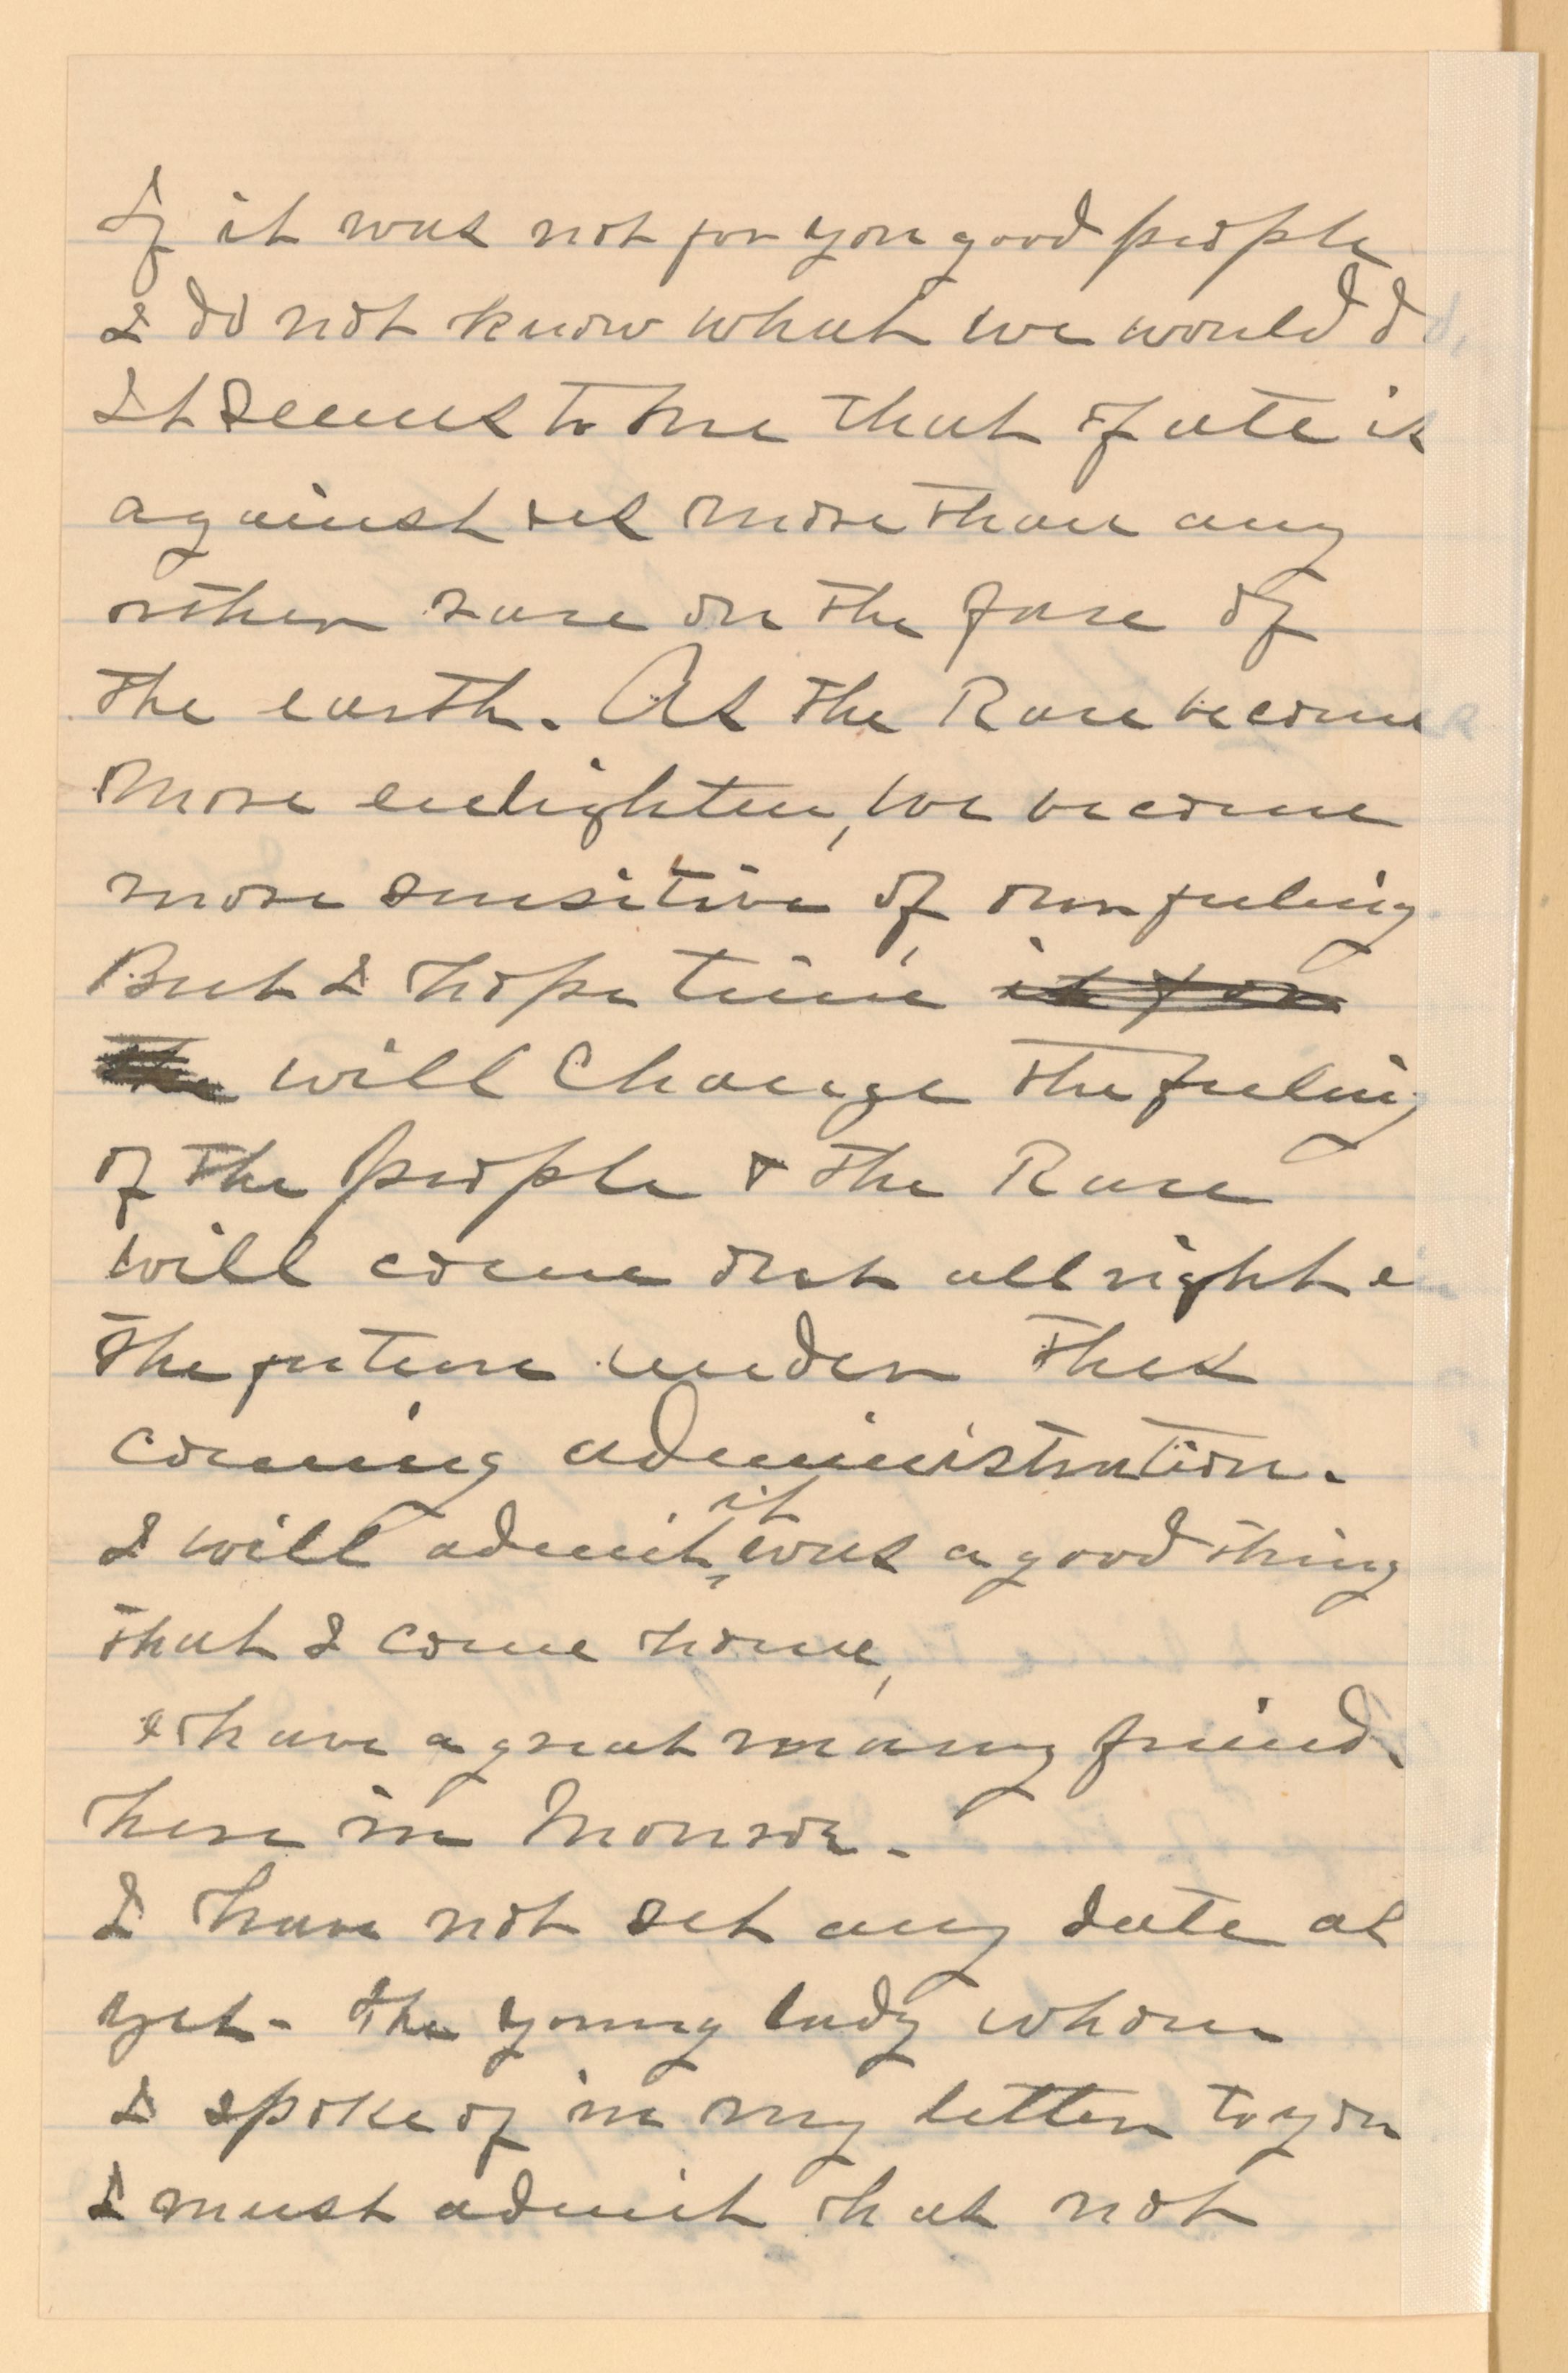 If it was not for you good people
I do not know what we would do,
It seems to me that fate is
against us more than any
other race on the face of
the earth. As the Race becomes
more enlighten, we become
more sensitive of our feeling.
But I hope time, it for
the will change the feeling
of the people & the Race
will come out all right in
the future under this
coming administration.
I will admit it was a good thing
that I come home,
I have a great many friend.
here in Monroe.
I have not set any date as
yet - the young lady whom
I spoke of in my letter to you
I must admit that not